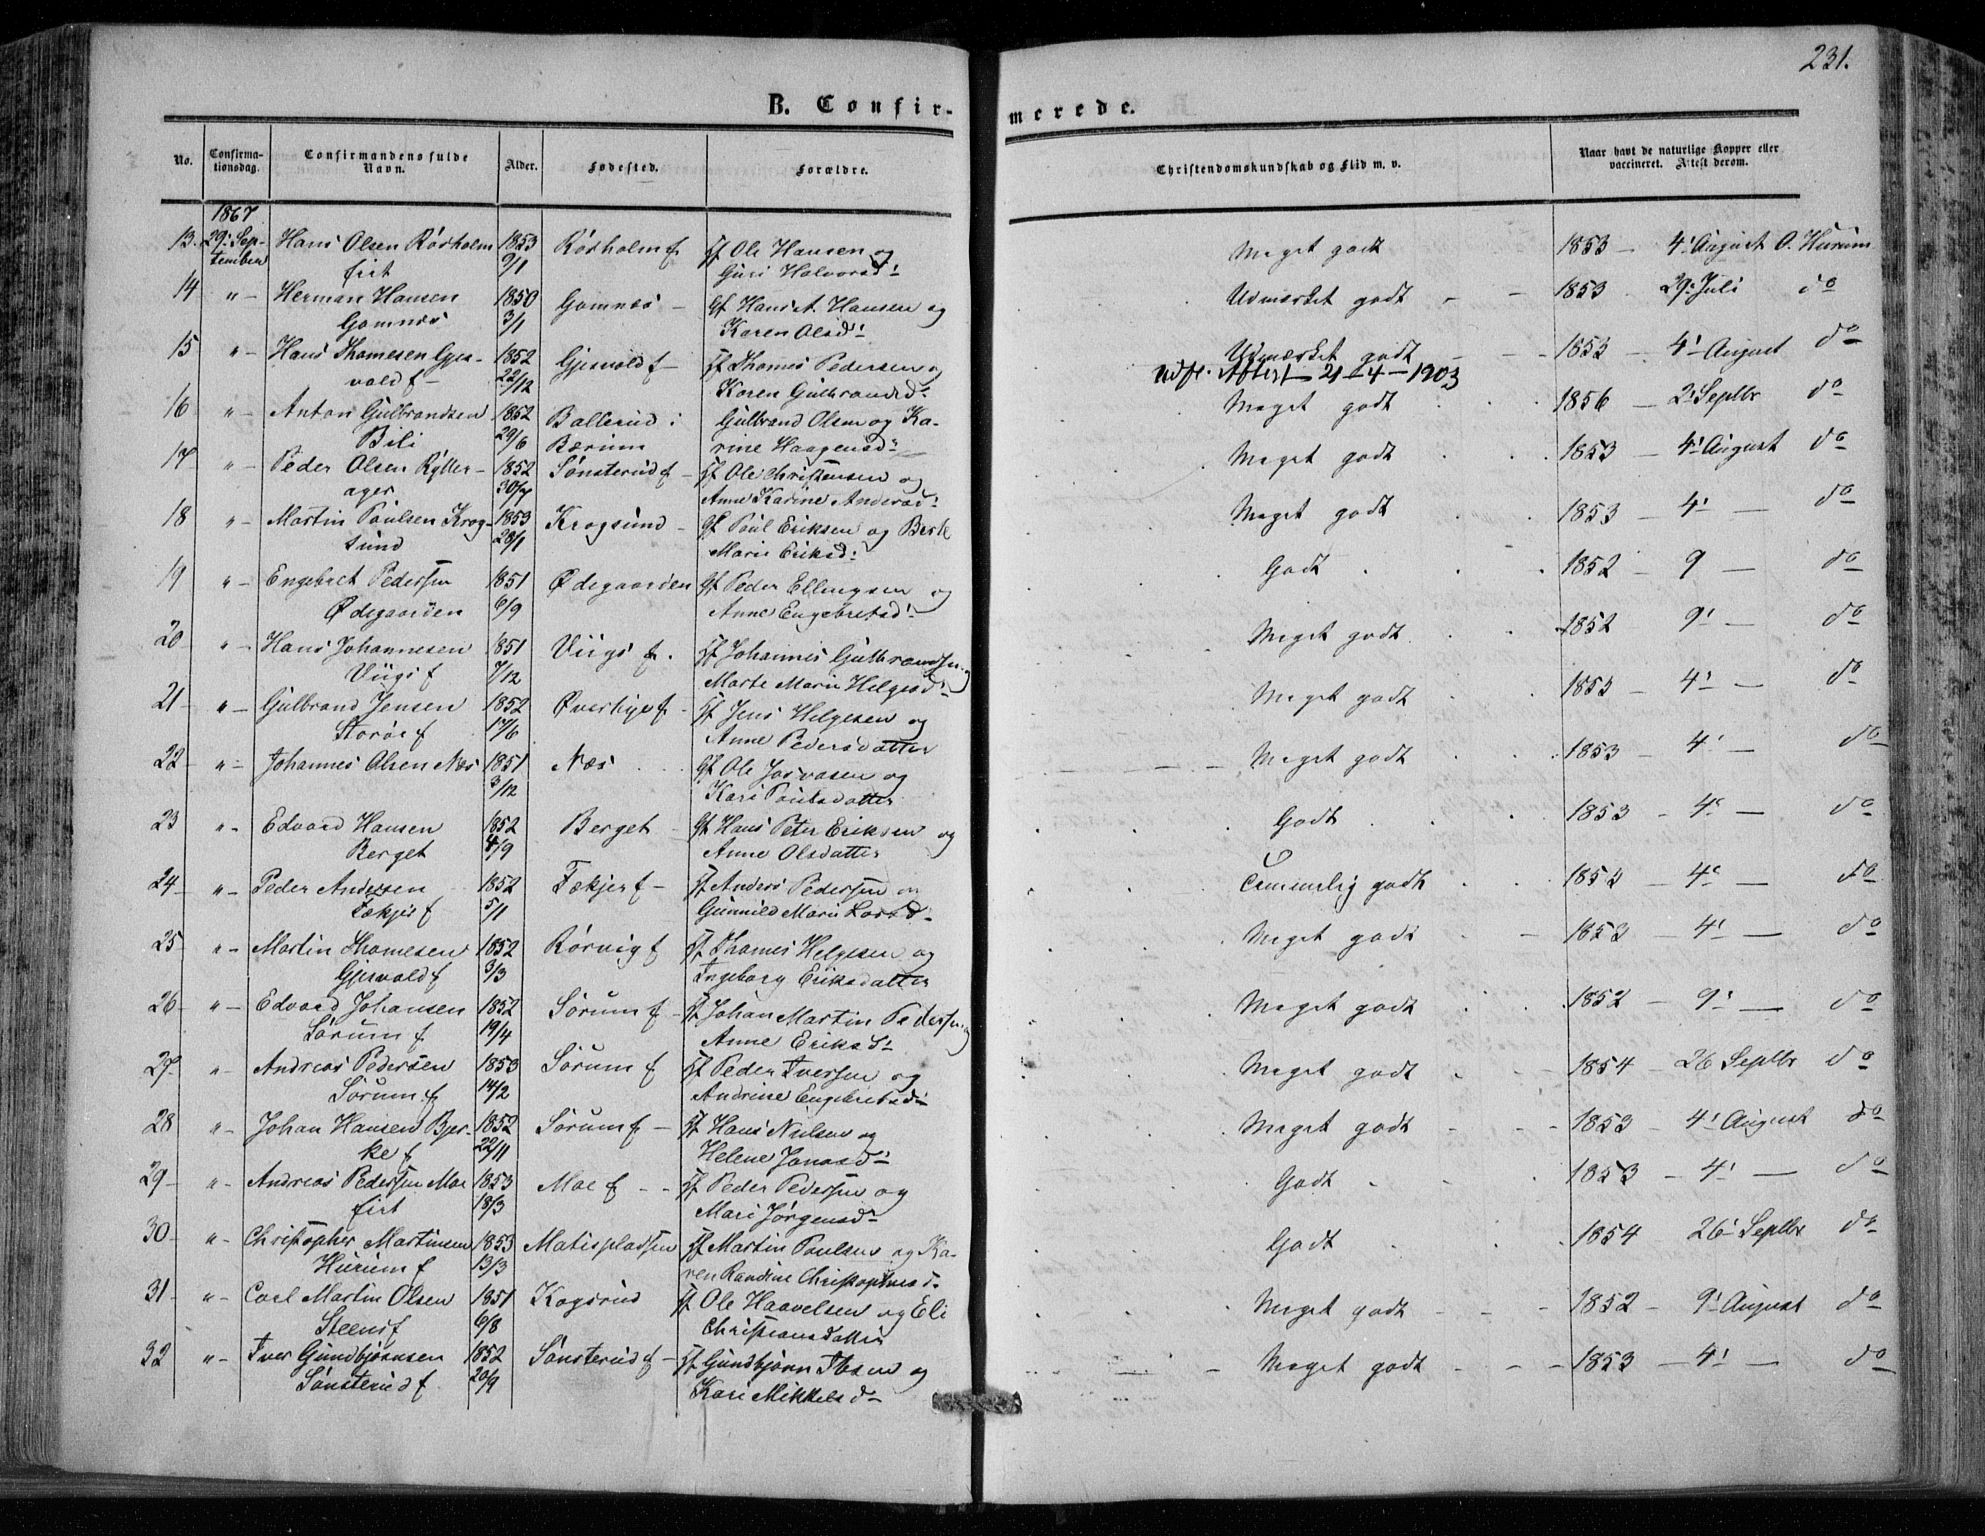 231.
B. Confir-
merede.
No.
Confirma-
tionsdag.
Confirmandens fulde
Navn.
Alder.
Fødested.
Forældre.
Christendomskundskab og Flid m. v.
Naar havt de naturlige Kopper eller
vaccineret. Attest derom.
1867
13. 29: Sep- Hans Olsen Rösholm 1853 Rösholm f. gf Ole Hansen og Meget godt 1853 - 4' August O. Hurum
tember 9/1 Guri Halvorsd:
14 " - Herman Hansen 1850 Gomnæs - gf Hans A. Hansen og Udmærket godt - - 1853 29: Juli do
Gomnæs 3/1 Karen Olsd:
15 " - Hans Thomesen Gjes- 1852 Gjesvold f - gf Thomes Pedersen og Udmærket godt - - 1853 - 4' August do
vold f - 22/12 Karen Gulbrandsd: Udf. Attest 21-4-1903
16 " - Anton Gulbrandsen 1852 Ballerud i Gulbrand Olsen og Ka- Meget godt 1856 - 2' Septbr do
Bili 29/6 Bærum rine Haagensd:
17 " - Peder Olsen Rytter- 1852 Sønsterud f - gf Ole Christensen og Meget godt 1853 4' August do
ager 30/7 Anne Karine Andersd:
18 " - Martin Paulsen Krog- 1853 Krogsund - gf Paul Eriksen og Berte Meget godt 1853 - 4' - do
sund 28/1 Marie Eriksd:
19 " - Engebret Pedersen 1851 Ødegaarden gf Peder Ellingsen og Godt 1852 - 9 - do
Ødegaarden 6/9 Anne Engebretsd:
20 " - Hans Johannesen 1851 Viigs f. gf Johannes Gulbrandsen og Meget godt 1852 9' - do
Viigs f 7/12 Marte Marie Helgesd:
21 - " - Gulbrand Jensen 1852 Øverbye f - gf Jens Helgesen og Meget godt 1853 - 4' - do
Storøe f 17/6 Anne Pedersdatter
22 - " - Johannes Olsen Næs 1851 Næs gf Ole Josvasen og Meget godt 1853 - 4' - do
3/12 Kari Paulsdatter
23 " - Edvard Hansen 1852 Berget - gf Hans Peter Eriksen og Godt 1853 - 4' - do
Berget 4/9 Anne Olsdatter
24 - " - Peder Andersen 1852 Fækjer f - gf Anders Pedersen og Temmelig godt 1852 - 4' - do
Fækjer f 5/1 Gunnild Marie Larsd:
25 " - Martin Thomesen 1852 Rørvig f gf Thomes Helgesen og Meget godt - 1853 - 4' - do
Gjesvold f 3/3 Ingeborg Eriksdatter
26 - " - Edvard Johansen 1852 Sørum f - gf Johan Martin Pedersen og Meget godt 1852 - 9' - do
Sørum f 19/4 Anne Eriksd:
27. " - Andreas Pedersen 1853 Sørum f gf Peder Iversen og Meget godt 1854 - 26 Septbr do
Sørum f 14/2 Andrine Engebretsd:
28 " - Johan Hansen Bjer- 1852 Sørum f - gf Hans Nielsen og Meget godt - - 1853 - 4' August do
ke f 22/11 Helene Jonasd:
29 - " - Andreas Pedersen Moe 1853 Moe f - - gf Peder Pedersen og Godt 1853 - 4' - do
firt 18/3 Mari Jørgensd:
30 - " - Christopher Martinsen 1853 Matispladsen gf Martin Paulsen og Ka- Godt 1854 26' Septbr do
Hurum f 13/3 ren Randine Christophersd:
31 - " - Carl Martin Olsen 1851 Kogsrud gf Ole Haavelsen og Eli Meget godt - - 1852 - 9' August do
Steens f 6/8 Christiansdatter
32 " - Iver Gundbjørnsen 1852 Sønsterud f - gf Gundbjørn Ibsen og Meget godt - - - 1853 - 4' - do
Sønsterud f. 20/9 Kari Mikkelsd: